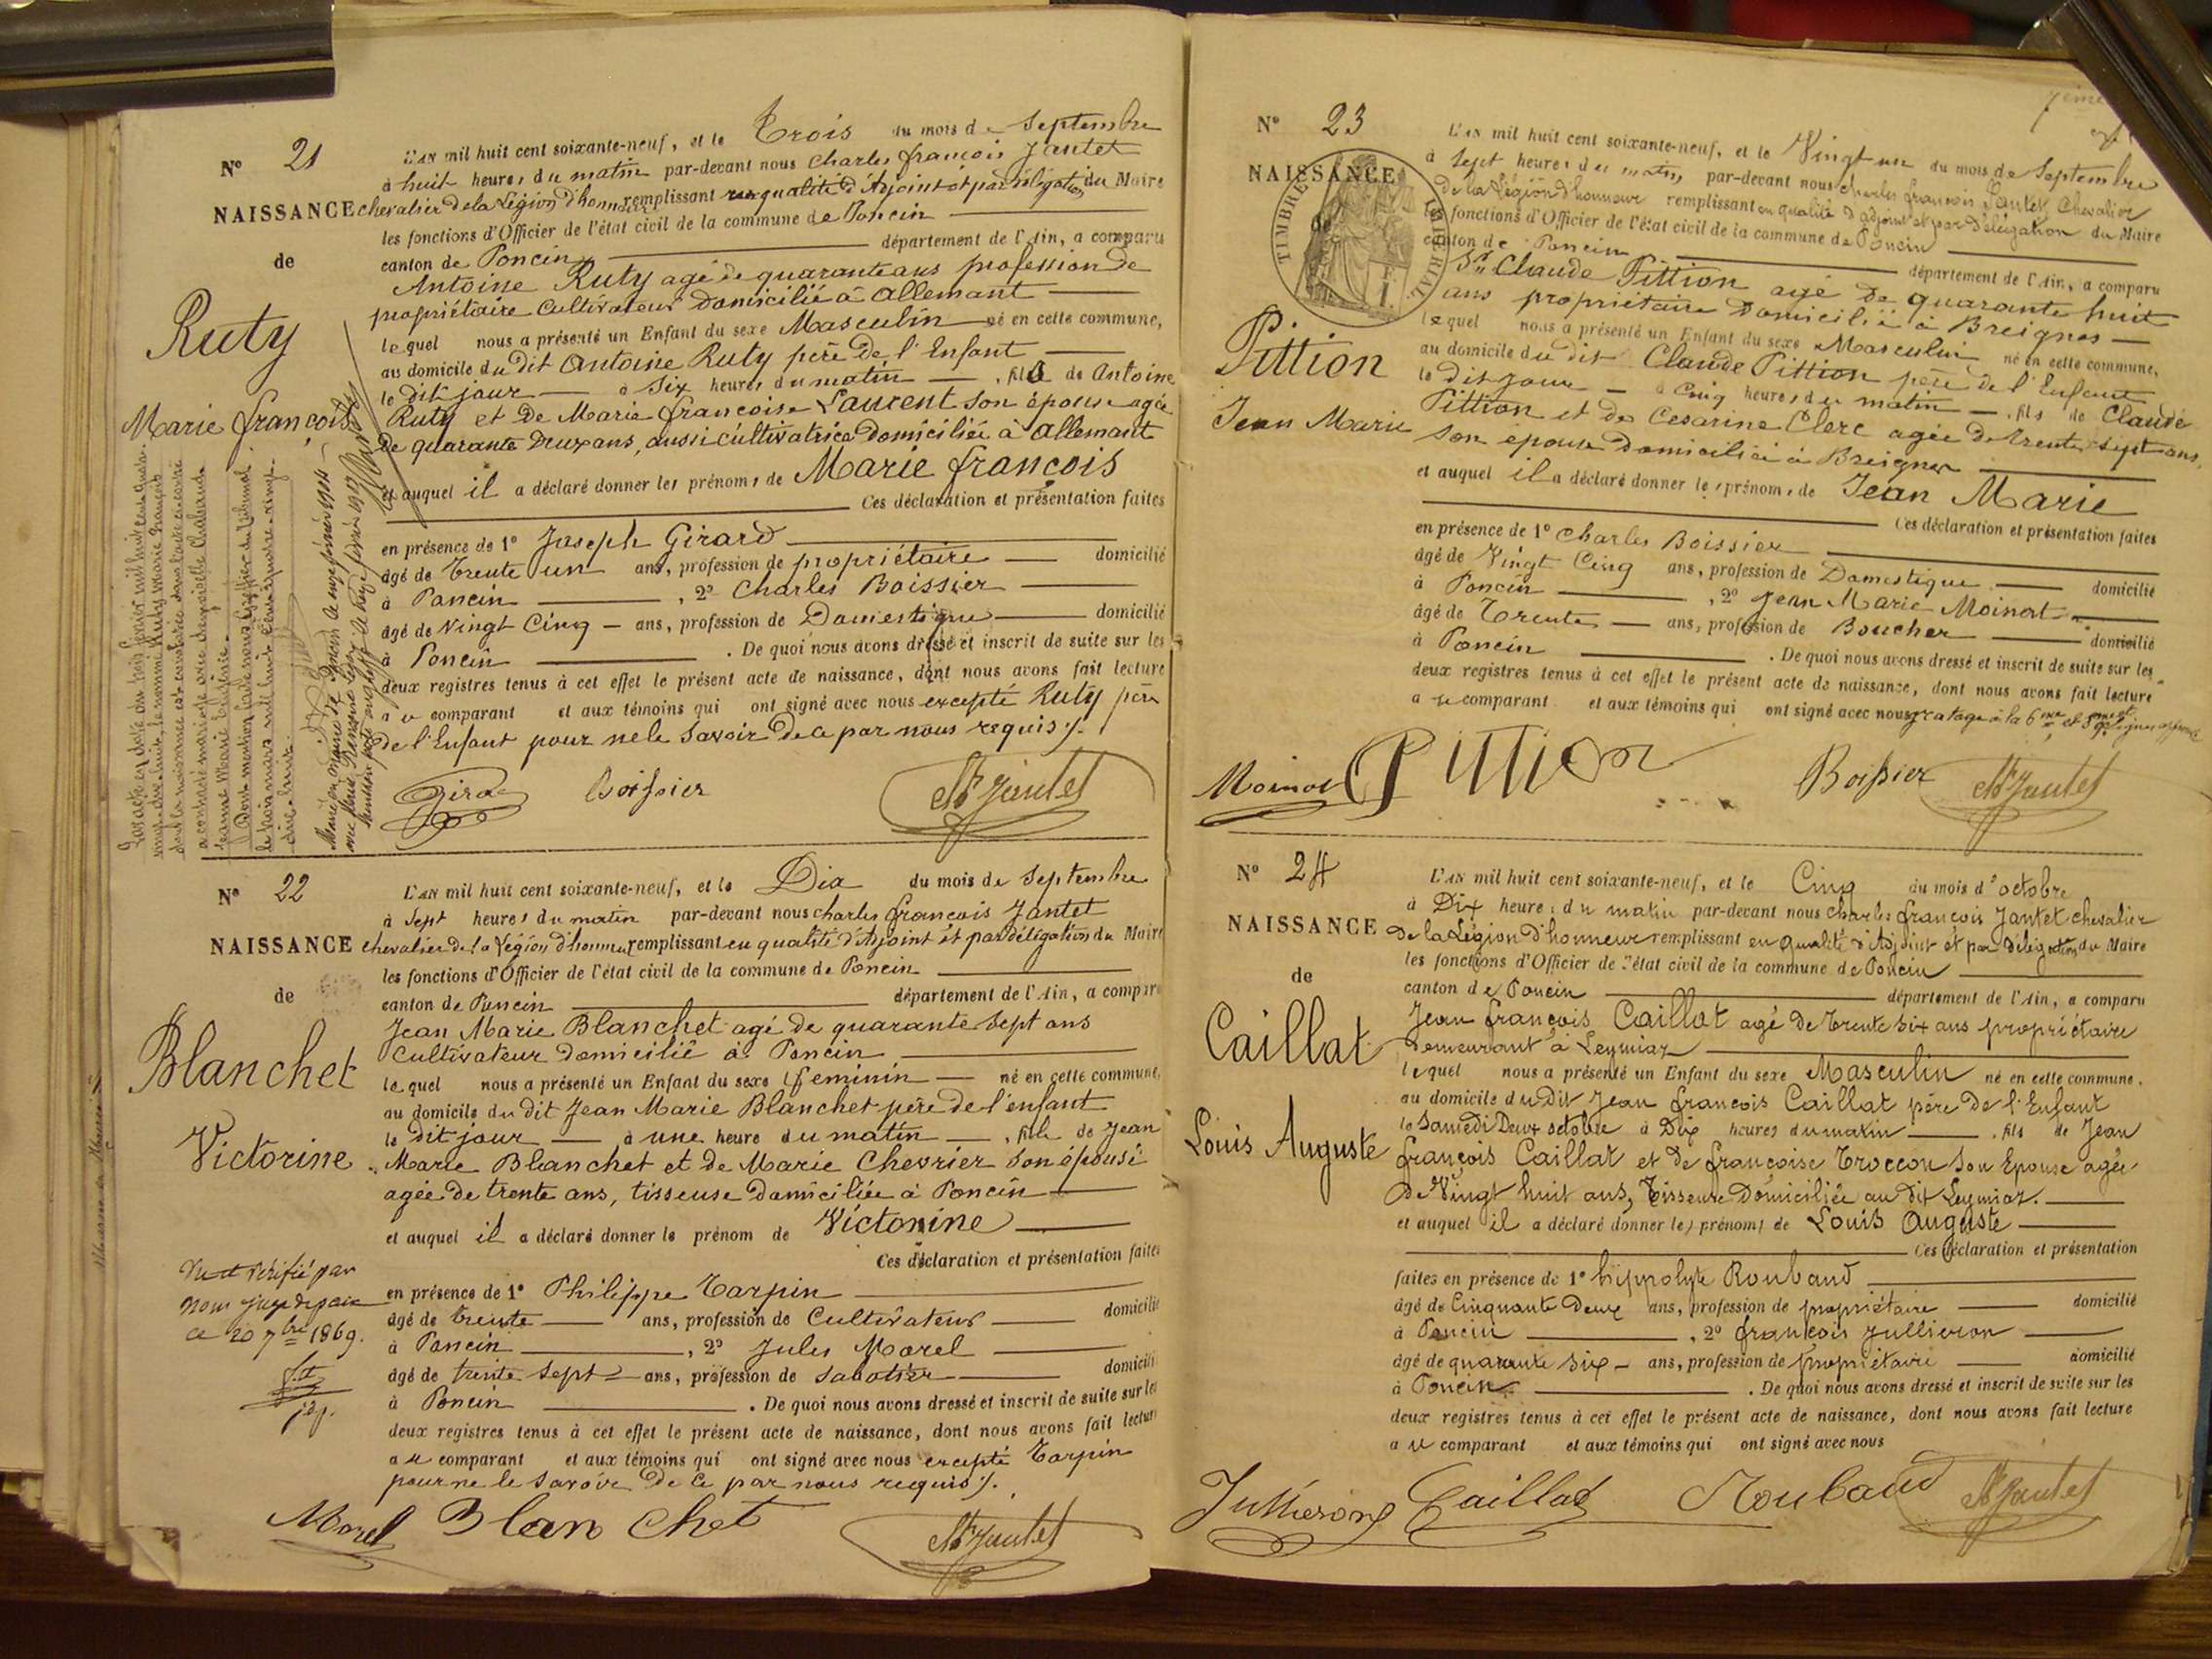 N° 21
NAISSANCE
de
Ruty
Marie françois
L'AN mil huit cent soixante-neuf, et le Trois du mois de Septembre
à huit heures du matin par-devant nous Charles françois Jantet
chevalier de la Légion d'honneur remplissant en qualité d'Adjoint et par délégation du Maire
les fonctions d'Officier de l'état civil de la commune de Poncin
canton de Poncin département de l'Ain, a comparu
Antoine Ruty agé de quarante ans profession de
propriétaire Cultivateur domicilié à Allemant
lequel nous a présenté un Enfant du sexe Masculin né en cette commune,
au domicile du dit Antoine Ruty père de l'Enfant
le dit jour à Six heures du matin , fils de Antoine
Ruty et de Marie françoise Laurent son épouse agée
de quarante deux ans, aussi cultivatrice domiciliée à Allemant
et auquel il a déclaré donner les prénoms de Marie françois
Ces déclaration et présentation faites
en présence de 1° Joseph Girard
âgé de trente un ans, profession de propriétaire domicilié
à Poncin , 2° Charles Boissier
âgé de Vingt Cinq ans, profession de Domestique domicilié
à Poncin . De quoi nous avons dressé et inscrit de suite sur les
deux registres tenus à cet effet le présent acte de naissance, dont nous avons fait lecture
au comparant et aux témoins qui ont signé avec nous excepté Ruty père
de l'Enfant pour ne le savoir de ce par nous requis /.
Boissier
Jantet
N° 22
NAISSANCE
de
Blanchet
Victorine
L'AN mil huit cent soixante-neuf, et le Dix du mois de Septembre
à Sept heures du matin par-devant nous charles françois Jantet
chevalier de la Légion d'honneur remplissant en qualité d'Adjoint et par délégation du Maire
les fonctions d'Officier de l'état civil de la commune de Poncin
canton de Poncin département de l'Ain, a comparu
Jean Marie Blanchet agé de quarante sept ans
Cultivateur domicilié à Poncin
lequel nous a présenté un Enfant du sexe féminin né en cette commune,
au domicile du dit Jean Marie Blanchet père de l'enfant
le dit jour à une heure du matin , fille de Jean
Marie Blanchet et de Marie Chevrier son épouse
agée de trente ans, tisseuse domiciliée à Poncin
et auquel il a déclaré donner le prénom de Victorine
Ces déclaration et présentation faites
en présence de 1° Philippe Tarpin
âgé de trente ans, profession de Cultivateur domicilié
à Poncin , 2° Jules Morel
âgé de trente sept ans, profession de Sabotier domicilié
à Poncin . De quoi nous avons dressé et inscrit de suite sur les
deux registres tenus à cet effet le présent acte de naissance, dont nous avons fait lecture
au comparant et aux témoins qui ont signé avec nous excepté Tarpin
pour ne le savoir de ce par nous requis /.
Vu et vérifié par
nous juge de paix
ce 20 7bre 1869.
Morel Blanchet
Jantet
N° 23
NAISSANCE
de
TIMBRE IMPÉRIAL
Pittion
Jean Marie
L'AN mil huit cent soixante-neuf, et le Vingt un du mois de Septembre
à Sept heures du matin par-devant nous charles françois Jantet Chevalier
de la Légion d'honneur remplissant en qualité d'adjoint et par délégation du Maire
les fonctions d'Officier de l'état civil de la commune de Poncin
canton de Poncin département de l'Ain, a comparu
Sr Claude Pittion agé de quarante huit
ans propriétaire domicilié à Breignes
lequel nous a présenté un Enfant du sexe Masculin né en cette commune,
au domicile du dit Claude Pittion père de l'Enfant
le dit jour à Cinq heures du matin , fils de Claude
Pittion et de Cesarine Clerc agée de trente sept ans
son épouse domiciliée à Breignes
et auquel il a déclaré donner les prénoms de Jean Marie
Ces déclaration et présentation faites
en présence de 1° Charles Boissier
âgé de Vingt Cinq ans, profession de Domestique domicilié
à Poncin , 2° Jean Marie Moinat
âgé de Trente ans, profession de Boucher domicilié
à Poncin . De quoi nous avons dressé et inscrit de suite sur les
deux registres tenus à cet effet le présent acte de naissance, dont nous avons fait lecture
au comparant et aux témoins qui ont signé avec nous
Moinat Pittion Boissier Jantet
N° 24
NAISSANCE
de
Caillat
Louis Auguste
L'AN mil huit cent soixante-neuf, et le Cinq du mois d'octobre
à Dix heures du matin par-devant nous charles françois Jantet chevalier
de la Légion d'honneur remplissant en qualité d'Adjoint et par délégation du Maire
les fonctions d'Officier de l'état civil de la commune de Poncin
canton de Poncin département de l'Ain, a comparu
Jean françois Caillat agé de trente six ans propriétaire
demeurant à Leymiaz
lequel nous a présenté un Enfant du sexe Masculin né en cette commune,
au domicile du dit Jean françois Caillat père de l'Enfant
le Samedi Deux octobre à Dix heures du matin , fils de Jean
françois Caillat et de françoise Troccon son Epouse agée
de Vingt huit ans, Tisseuse domiciliée au dit Leymiaz.
et auquel il a déclaré donner les prénoms de Louis Auguste
Ces déclaration et présentation
faites en présence de 1° hippolyte Roubaud
âgé de Cinquante Deux ans, profession de propriétaire domicilié
à Poncin , 2° françois Jullieron
âgé de quarante six ans, profession de propriétaire domicilié
à Poncin . De quoi nous avons dressé et inscrit de suite sur les
deux registres tenus à cet effet le présent acte de naissance, dont nous avons fait lecture
au comparant et aux témoins qui ont signé avec nous
Jullieron Caillat Roubaud Jantet